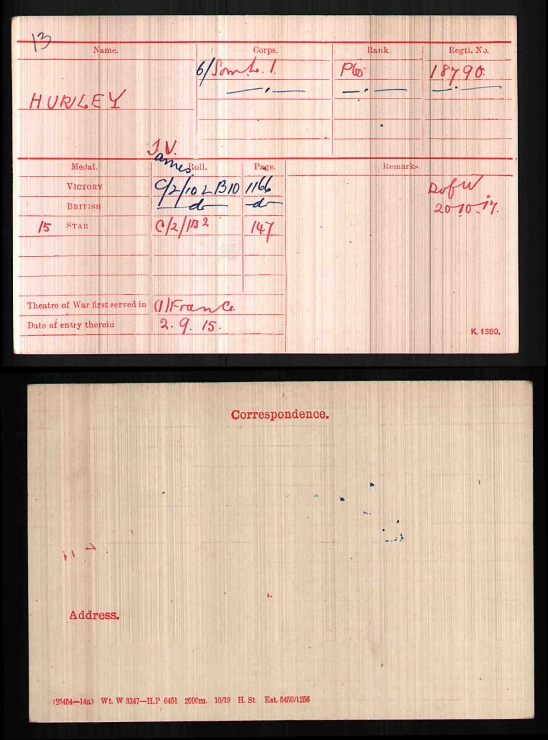 13
Name. Corps. Rank. Regtl. No.
HURLEY 6/Som. L. I. Pte 18790.
J.V.
ames
Medal. Roll. Page. Remarks
VICTORY C/2/10 L B10 1166 D of W
BRITISH do do 20-10-17.
15 STAR C/2/1B2 147
Theatre of War first served in (1) France
Date of entry therein 2. 9. 15.
K. 1380.
Correspondence.
Address.
(25454—14a) Wt. W 3347—H.P 6451 2000m. 10/19 H. St Est. 5450/1256